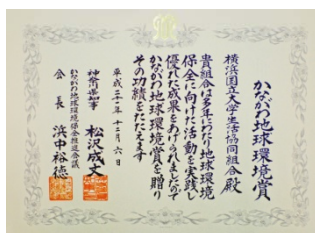 かながわ地球環境賞
横浜国立大学生活協同組合 殿
貴組合は多年にわたり地球環境
保全に向けた活動を実践し
優れた成果をあげられましたので
かながわ地球環境賞を贈り
その功績をたたえます
平成二十一年十二月六日
神奈川県知事 松沢成文
かながわ地球環境保全推進会議
会長 浜中裕徳